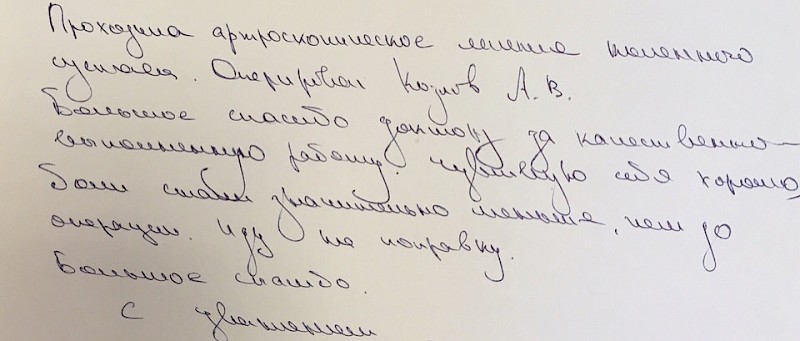 Проходила артроскопическое лечение коленного
сустава. Оперировал Козлов А.В.
Большое спасибо доктору за качественно
выполненную работу. Чувствую себя хорошо,
боли стали значительно меньше, чем до
операции. Иду на поправку.
Большое спасибо.
С уважением